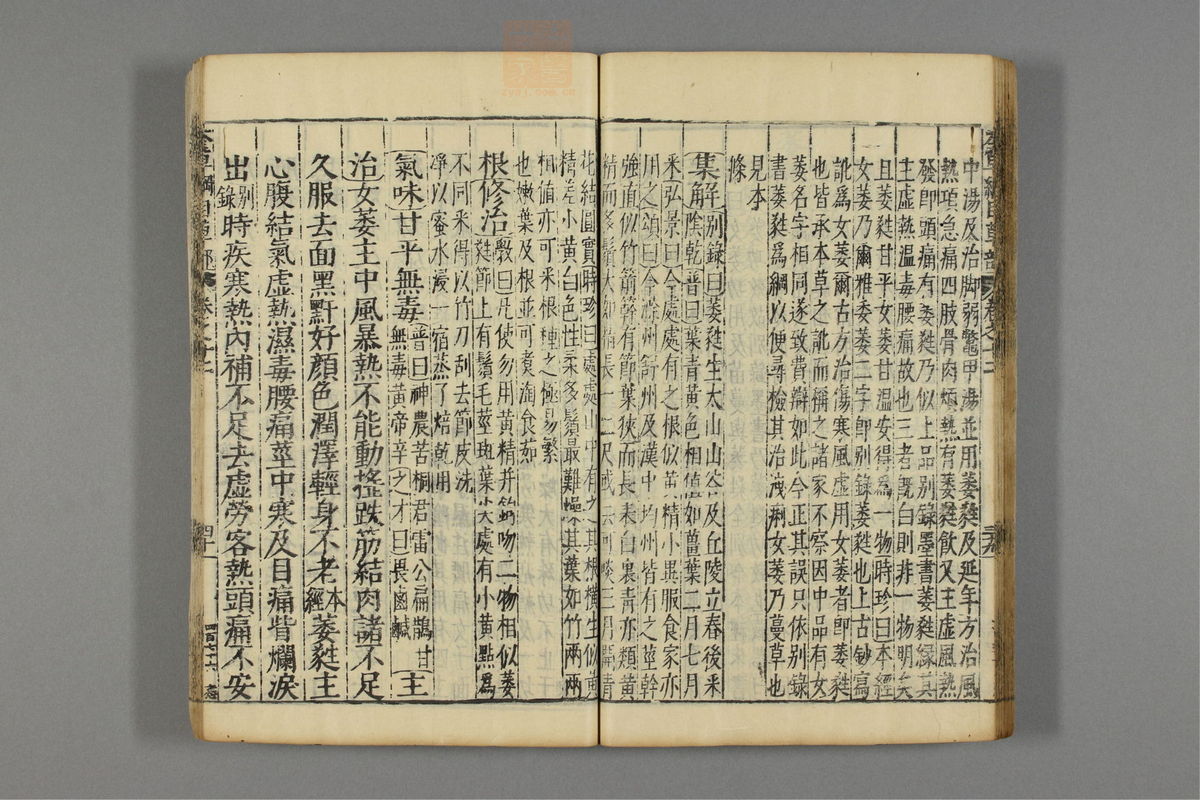 中湯及治脚弱鼈甲湯並用萎蕤及延年方治風
熱項急痛四肢骨肉煩熱有萎蕤飲又主虛風熱
發即頭痛有萎蕤乃似上品別錄墨書萎蕤緣其
主虛熱溫毒腰痛故也三者旣白則非一物明矣
且萎蕤甘平女萎甘溫安得爲一物時珍曰本經
女萎乃爾雅委萎二字即別錄萎蕤也上古鈔寫
訛爲女萎爾古方治傷寒風虛用女萎者即萎蕤
也皆承本草之訛而稱之諸家不察因中品有女
萎名字相同遂致費辯如此今正其誤只依別錄
書萎蕤爲綱以便尋檢其治洩痢女萎乃蔓草也
見本
條
集解別錄曰萎蕤生太山山谷及丘陵立春後采
陰乾普曰葉青黃色相值如薑葉二月七月
采弘景曰今處處有之根似黃精小異服食家亦
用之頌曰今滁州舒州及漢中均州皆有之莖幹
強直似竹箭簳有節葉狹而長表白裏青亦類黃
精而多鬚大如指長一二尺或云可啖三月開青
花結圓實時珍曰處處山中有之其根橫生似黃
精差小黃白色性柔多鬚最難燥其葉如竹兩兩
相值亦可采根種之極易繁
也嫩葉及根並可煮淘食茹
根修治斆曰凡使勿用黃精并鉤吻二物相似萎
蕤節上有鬚毛莖斑葉尖處有小黃點爲
不同采得以竹刀刮去節皮洗
淨以蜜水浸一宿蒸了焙乾用
氣味甘平無毒普曰神農苦桐君雷公扁鵲甘
無毒黃帝辛之才曰畏鹵鹹主
治女萎主中風暴熱不能動搖跌筋結肉諸不足
久服去面黑䵟好顏色潤澤輕身不老本經萎蕤主
心腹結氣虛熱濕毒腰痛莖中寒及目痛眥爛淚
出別錄時疾寒熱內補不足去虛勞客熱頭痛不安